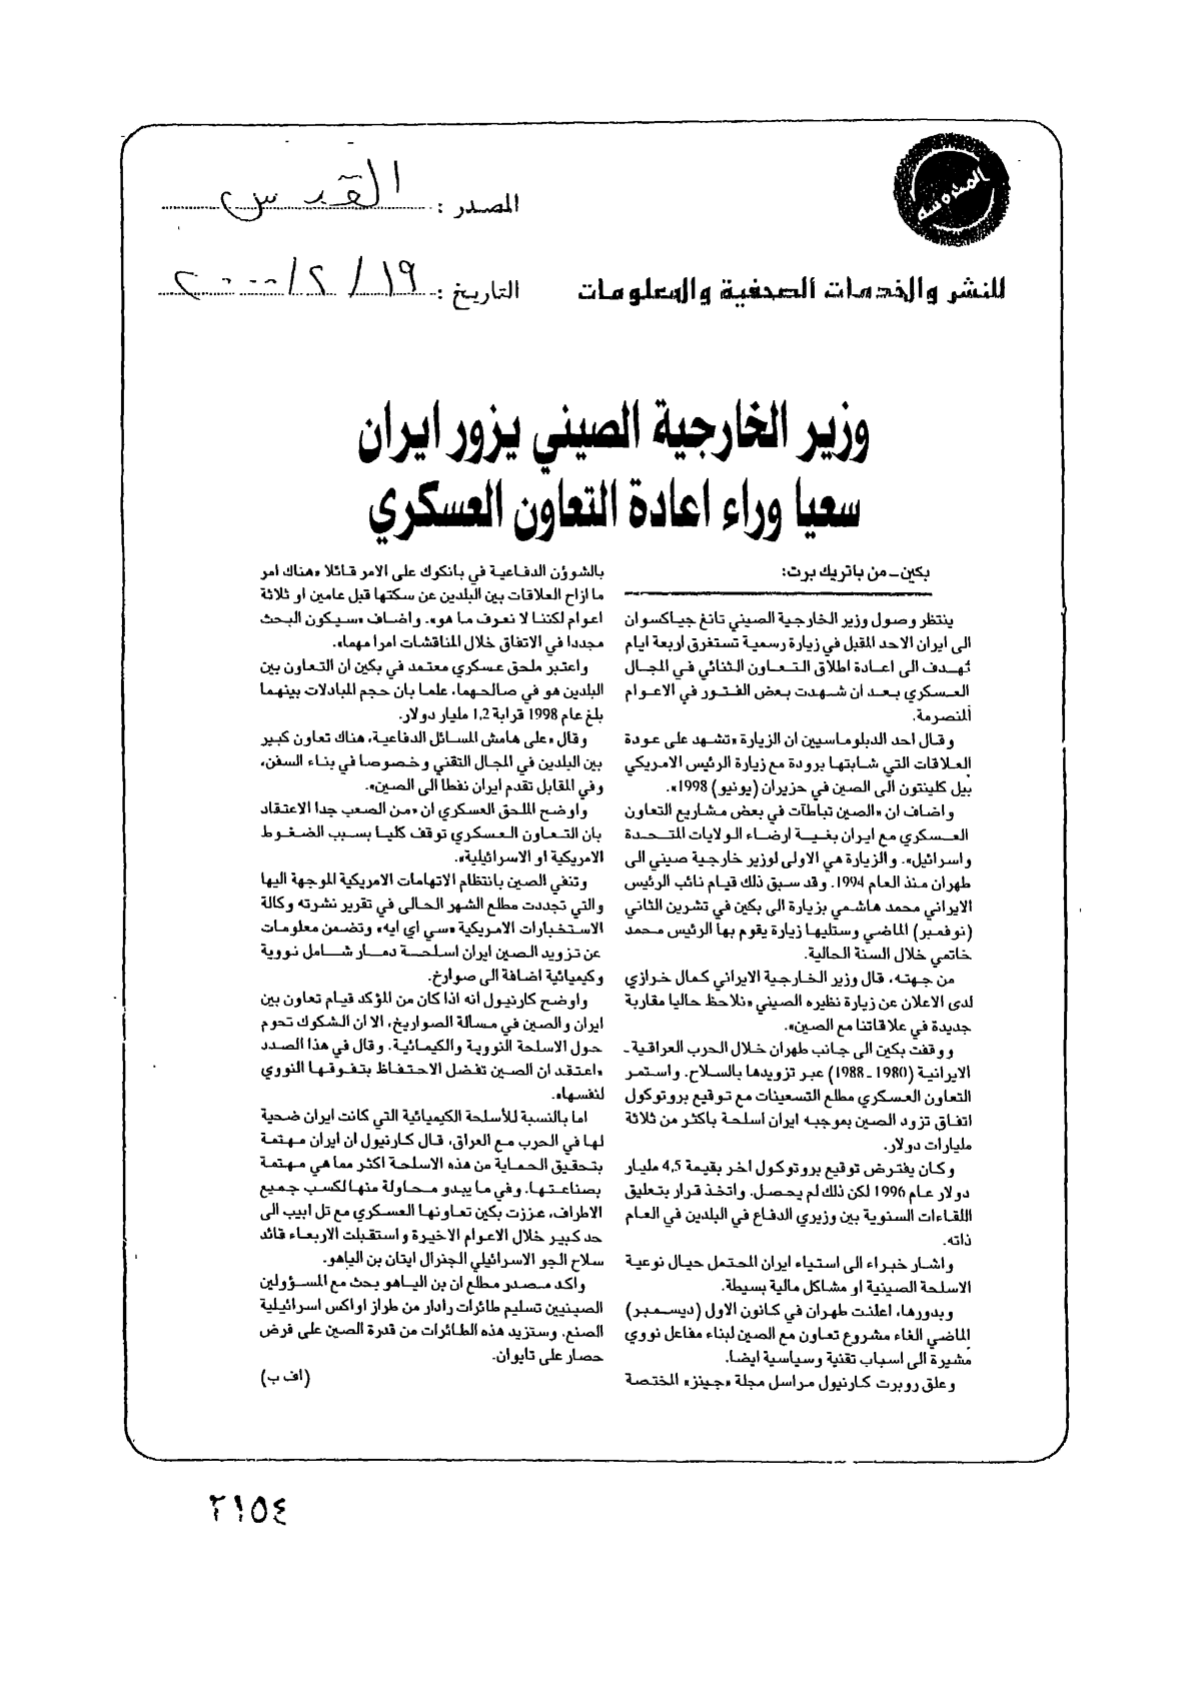 المصدر : القدس
للنشر والخدمات الصحفية والمعلومات
التاريخ : ١٩ / ٢ / ٢٠٠٠
وزير الخارجية الصيني يزور ايران
سعيا وراء اعادة التعاون العسكري
بكين ـ من باتريك برت:
ينتظر وصول وزير الخارجية الصيني تانغ جياكسوان
الى ايران الاحد المقبل في زيارة رسمية تستغرق اربعة ايام
تهدف الى اعادة اطلاق التعاون الثنائي في المجال
العسكري بعد ان شهدت بعض الفتور في الاعوام
المنصرمة.
وقال احد الدبلوماسيين ان الزيارة «تشهد على عودة
العلاقات التي شابتها برودة مع زيارة الرئيس الامريكي
بيل كلينتون الى الصين في حزيران (يونيو) 1998».
واضاف ان «الصين تباطآت في بعض مشاريع التعاون
العسكري مع ايران بغية ارضاء الولايات المتحدة
واسرائيل». والزيارة هي الاولى لوزير خارجية صيني الى
طهران منذ العام 1994. وقد سبق ذلك قيام نائب الرئيس
الايراني محمد هاشمي بزيارة الى بكين في تشرين الثاني
(نوفمبر) الماضي وستليها زيارة يقوم بها الرئيس محمد
خاتمي خلال السنة الحالية.
من جهته، قال وزير الخارجية الايراني كمال خرازي
لدى الاعلان عن زيارة نظيره الصيني «نلاحظ حاليا مقاربة
جديدة في علاقاتنا مع الصين».
ووقفت بكين الى جانب طهران خلال الحرب العراقية ـ
الايرانية (1980 ـ 1988) عبر تزويدها بالسلاح. واستمر
التعاون العسكري مطلع التسعينات مع توقيع بروتوكول
اتفاق تزود الصين بموجبه ايران اسلحة باكثر من ثلاثة
مليارات دولار.
وكان يفترض توقيع بروتوكول اخر بقيمة 4,5 مليار
دولار عام 1996 لكن ذلك لم يحصل. واتخذ قرار بتعليق
اللقاءات السنوية بين وزيري الدفاع في البلدين في العام
ذاته.
واشار خبراء الى استياء ايران المحتمل حيال نوعية
الاسلحة الصينية او مشاكل مالية بسيطة.
وبدورها، اعلنت طهران في كانون الاول (ديسمبر)
الماضي الغاء مشروع تعاون مع الصين لبناء مفاعل نووي
مشيرة الى اسباب تقنية وسياسية ايضا.
وعلق روبرت كارنيول مراسل مجلة «جينز» المختصة
بالشوؤن الدفاعية في بانكوك على الامر قائلا «هناك امر
ما ازاح العلاقات بين البلدين عن سكتها قبل عامين او ثلاثة
اعوام لكننا لا نعرف ما هو». واضاف «سيكون البحث
مجددا في الاتفاق خلال المناقشات امرا مهما».
واعتبر ملحق عسكري معتمد في بكين ان التعاون بين
البلدين هو في صالحهما، علما بان حجم المبادلات بينهما
بلغ عام 1998 قرابة 1,2 مليار دولار.
وقال «على هامش المسائل الدفاعية، هناك تعاون كبير
بين البلدين في المجال التقني وخصوصا في بناء السفن،
وفي المقابل تقدم ايران نفطا الى الصين».
واوضح الملحق العسكري ان «من الصعب جدا الاعتقاد
بان التعاون العسكري توقف كليا بسبب الضغوط
الامريكية او الاسرائيلية».
وتنفي الصين بانتظام الاتهامات الامريكية الموجهة اليها
والتي تجددت مطلع الشهر الحالى في تقرير نشرته وكالة
الاستخبارات الامريكية «سي اي ايه» وتضمن معلومات
عن تزويد الصين ايران اسلحة دمار شامل نووية
وكيميائية اضافة الى صوارخ.
واوضح كارنيول انه اذا كان من المؤكد قيام تعاون بين
ايران والصين في مسألة الصواريخ، الا ان الشكوك تحوم
حول الاسلحة النووية والكيمائية. وقال في هذا الصدد
«اعتقد ان الصين تفضل الاحتفاظ بتفوقها النووي
لنفسها».
اما بالنسبة للأسلحة الكيميائية التي كانت ايران ضحية
لها في الحرب مع العراق، قال كارنيول ان ايران مهتمة
بتحقيق الحماية من هذه الاسلحة اكثر مما هي مهتمة
بصناعتها. وفي ما يبدو محاولة منها لكسب جميع
الاطراف، عززت بكين تعاونها العسكري مع تل ابيب الى
حد كبير خلال الاعوام الاخيرة واستقبلت الاربعاء قائد
سلاح الجو الاسرائيلي الجنرال ايتان بن الياهو.
واكد مصدر مطلع ان بن الياهو بحث مع المسؤولين
الصينيين تسليم طائرات رادار من طراز اواكس اسرائيلية
الصنع. وستزيد هذه الطائرات من قدرة الصين على فرض
حصار على تايوان.
(اف ب)
٢١٥٤